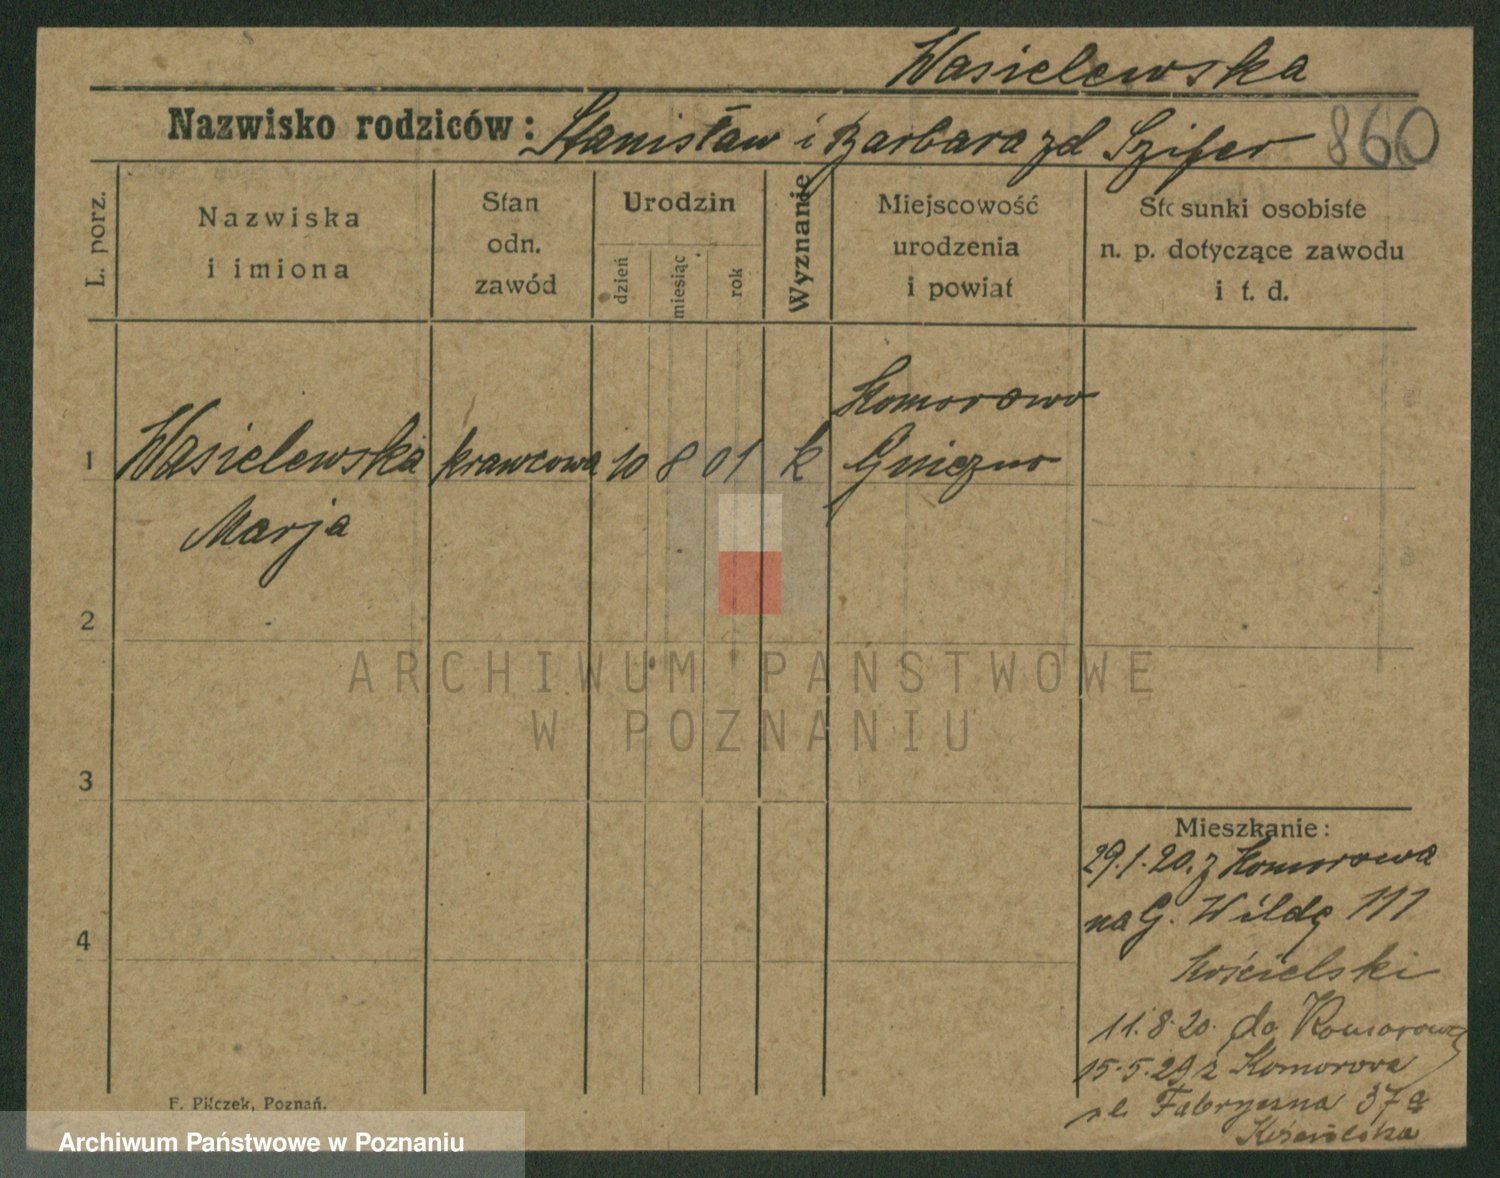 Wasielewska
Nazwisko rodziców: Stanisław i Barbara zd Szifer 860
L. porz.
Nazwiska
i imiona
Stan
odn.
zawód
Urodzin
dzień
miesiąc
rok
Wyznanie
Miejscowość
urodzenia
i powiat
Stosunki osobiste
n. p. dotyczące zawodu
i t. d.
Komorowo
1 Wasielewska krawcowa 10 8 01 k Gniezno
Marja
2
3
4
Mieszkanie:
29.1.20. z Komorowa
na G. Wildę 111
Kościelski
11.8.20. do Komorowa
15.5.29 z Komorowa
ul. Fabryczna 37a
Kościelska
F. Pilczek, Poznań.
ARCHIWUM PAŃSTWOWE
W POZNANIU
Archiwum Państwowe w Poznaniu